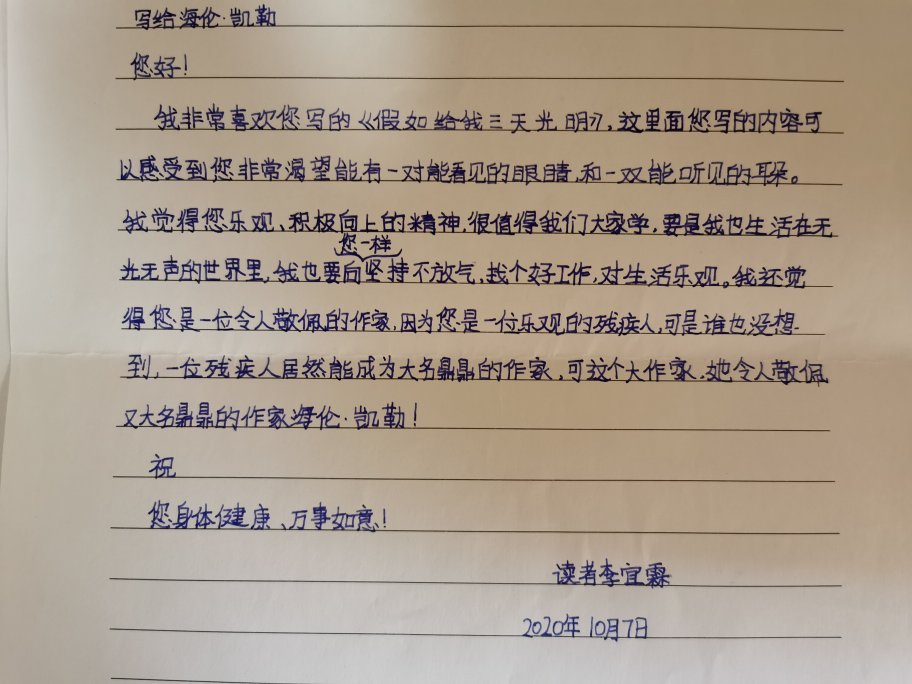 写给海伦·凯勒
您好！
我非常喜欢您写的《假如给我三天光明》，这里面您写的内容可
以感受到您非常渴望能有一对能看见的眼睛，和一双能听见的耳朵。
我觉得您乐观、积极向上的精神，很值得我们大家学，要是我也生活在无
您一样
光无声的世界里，我也要向坚持不放气，找个好工作，对生活乐观。我还觉
得您是一位令人敬佩的作家，因为您是一位乐观的残疾人，可是谁也没想
到，一位残疾人居然能成为大名鼎鼎的作家，可这个大作家，她令人敬佩
又大名鼎鼎的作家海伦·凯勒！
祝
您身体健康、万事如意！
读者李宜霖
2020年10月7日